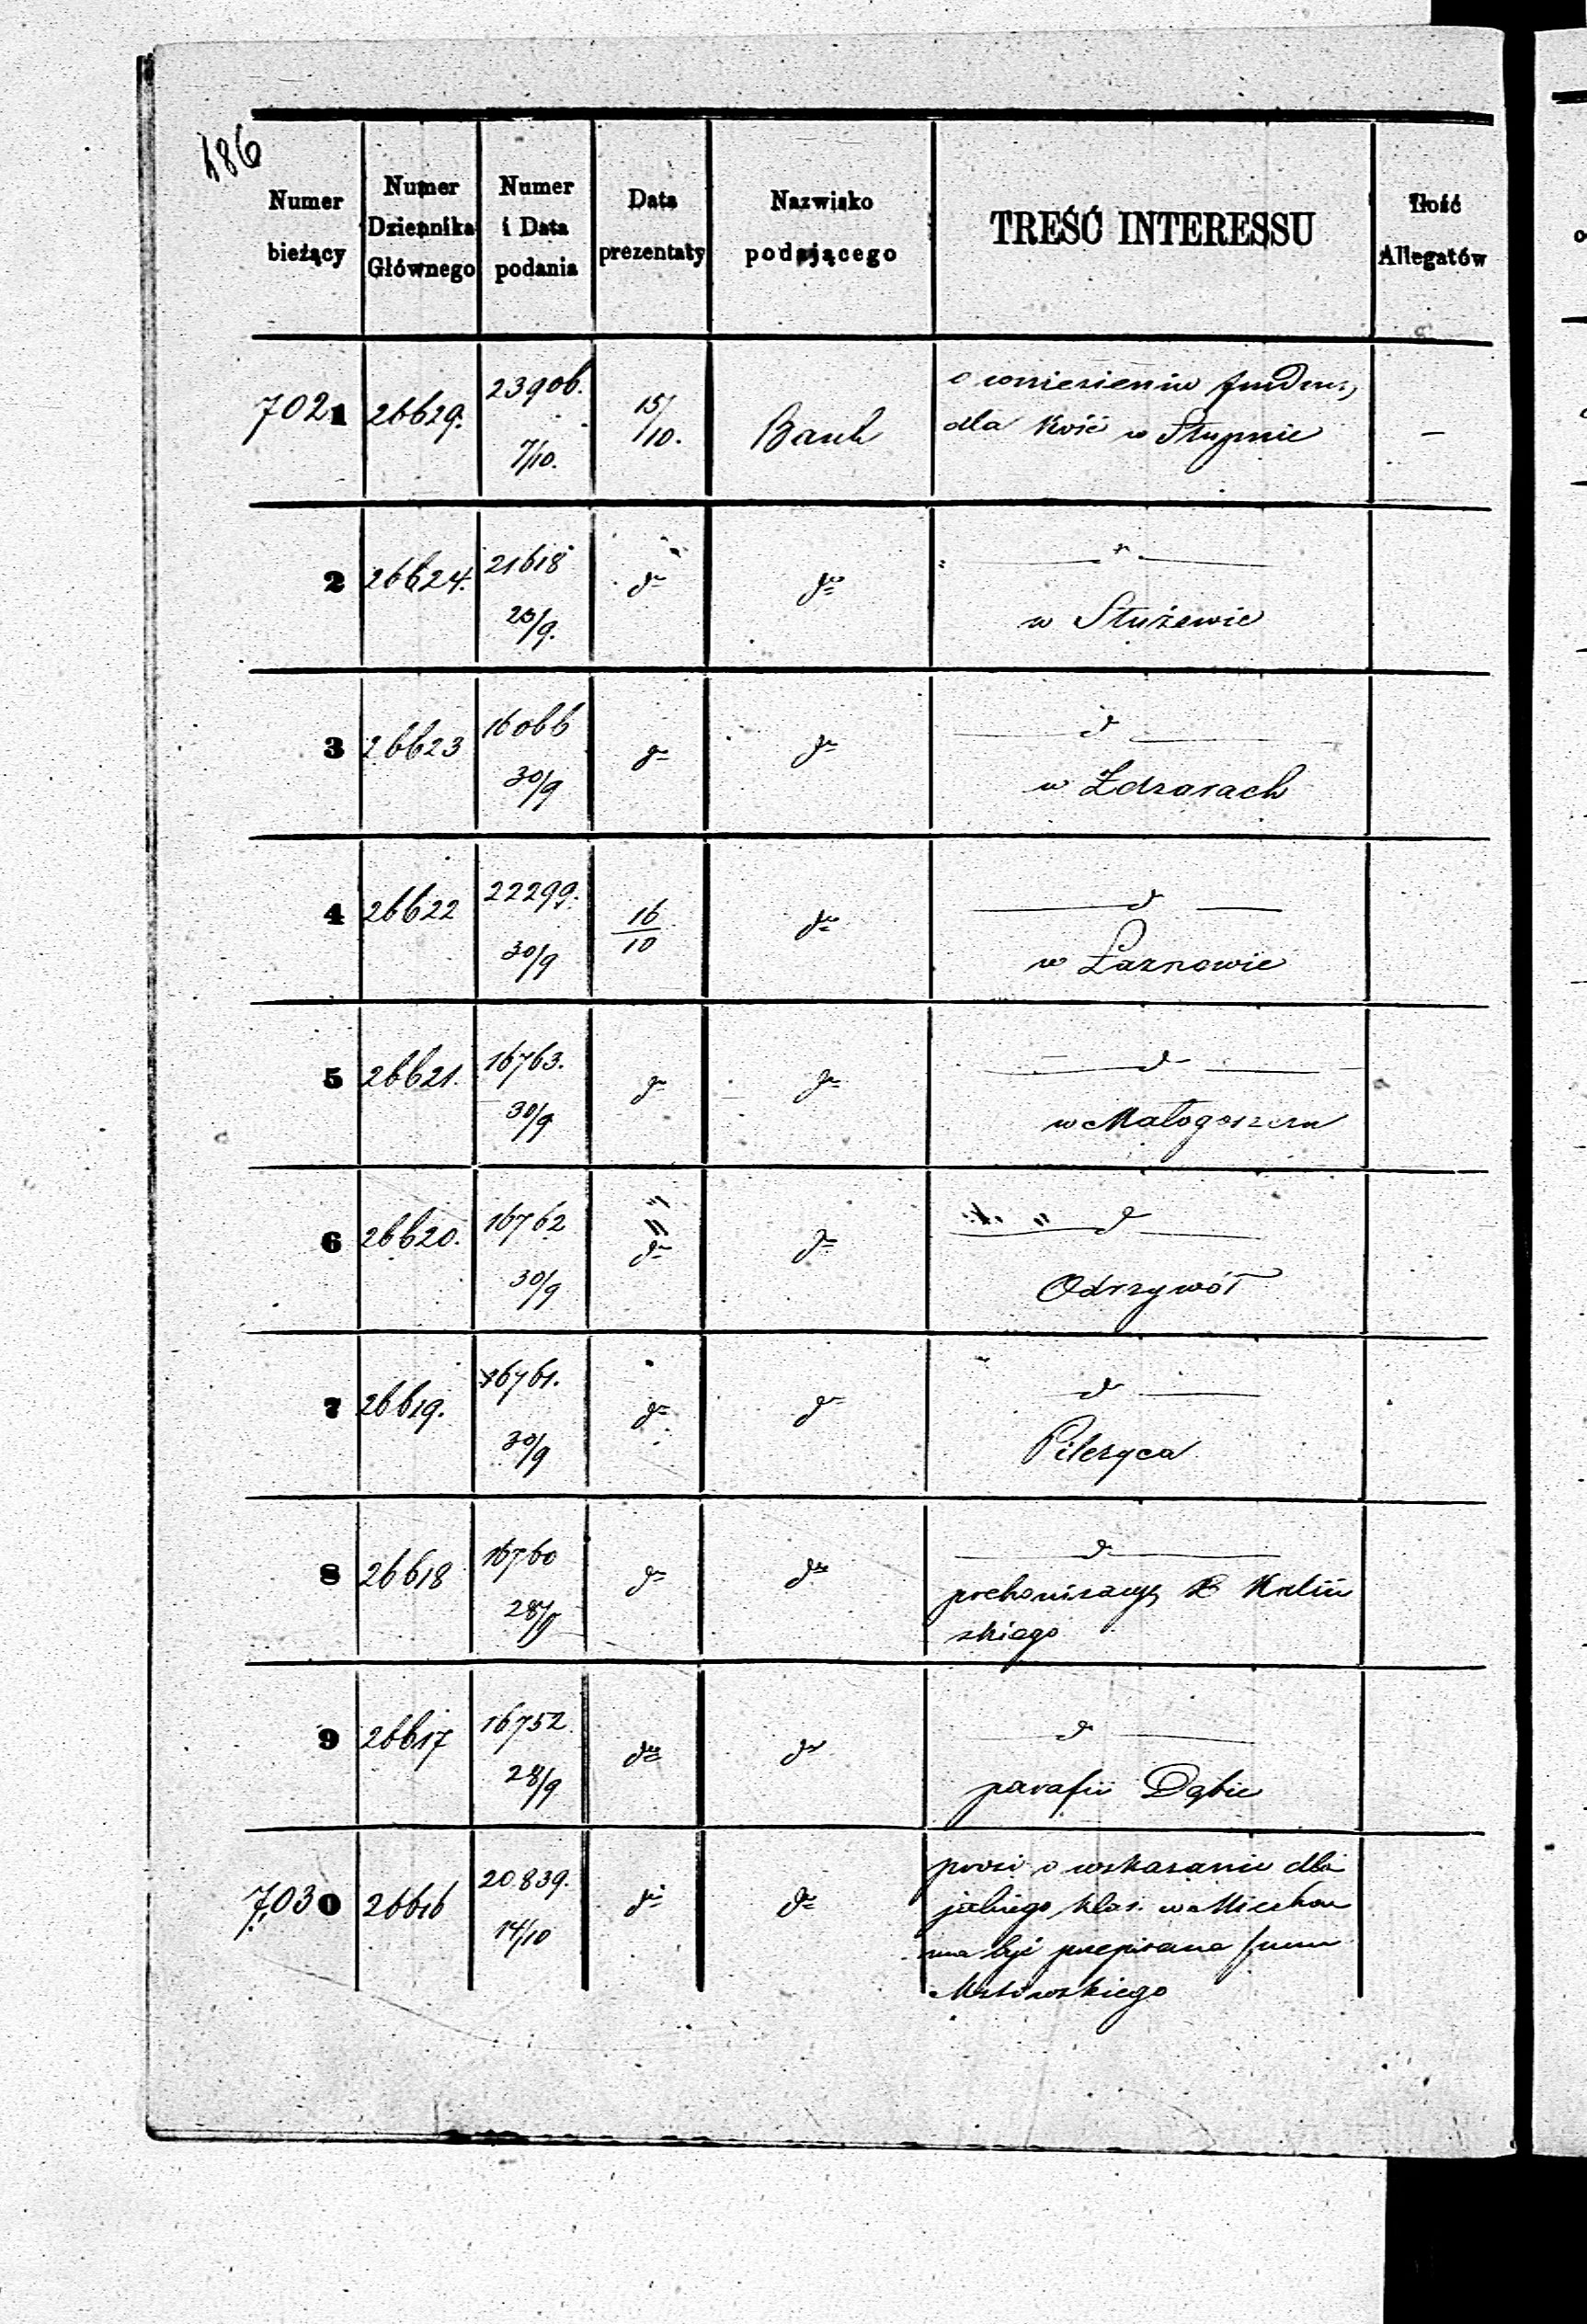 486
Numer bieżący
Numer Dziennika Głównego
Numer i Data podania
Data prezentaty
Nazwisko podającego
TREŚĆ INTERESSU
Ilość Allegatów
7021 26629. 23906. 7/10. 15/10. Bank o wniesieniu fundusz
dla Kość w Słupnie —
2 26624. 21618 20/9. do do — " —
w Służewie
3 26623 16066 30/9 do do — do —
w Zdżarach
4 26622 22299. 30/9 16/10 do — do —
w Łaznowie
5 26621. 16763. 30/9 do do — do —
w Małogoszczu
6 26620. 16762 30/9 do do — do —
Odrzywół
7 26619. 16761. 30/9 do do do —
Pilczyca
8 26618 16760 28/9 do do — do —
prekonizacyę X Kaliń
skiego
9 26617 16752 28/9 do do do —
parafii Dąbie
7030 26616 20839. 14/10 do do prosi o wskazanie dla
jakiego klas. w Miechow
ma być przepisana summ